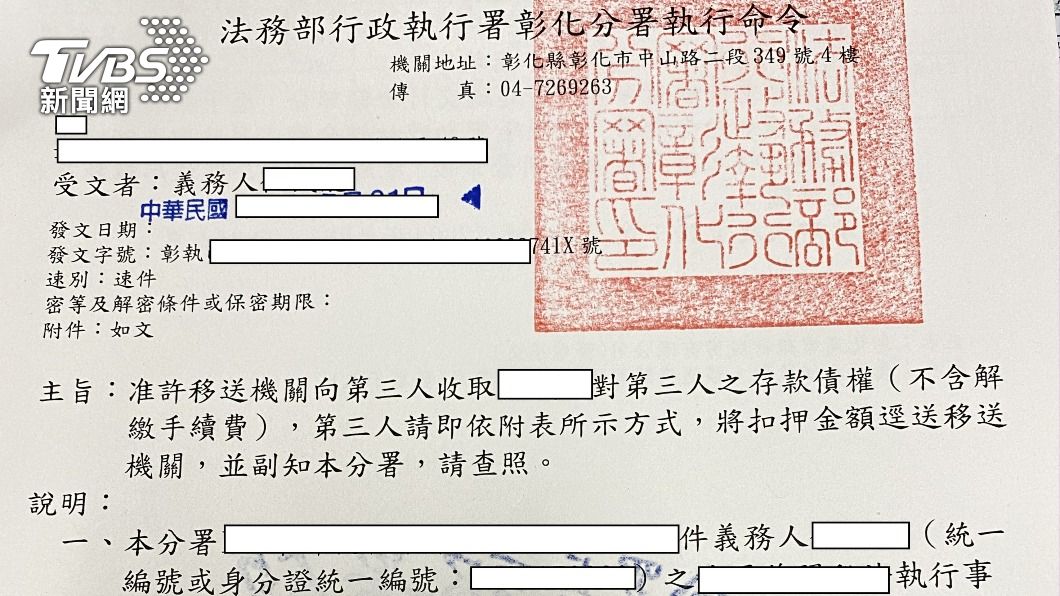 TVBS
新聞網
法務部行政執行署彰化分署執行命令
機關地址：彰化縣彰化市中山路二段349號4樓
傳　　真：04-7269263
受文者：義務人
中華民國
發文日期：
發文字號：彰執 741X 號
速別：速件
密等及解密條件或保密期限：
附件：如文
主旨：准許移送機關向第三人收取 對第三人之存款債權（不含解
繳手續費），第三人請即依附表所示方式，將扣押金額逕送移送
機關，並副知本分署，請查照。
說明：
一、本分署 件義務人 （統一
編號或身分證統一編號： ）之 執行事